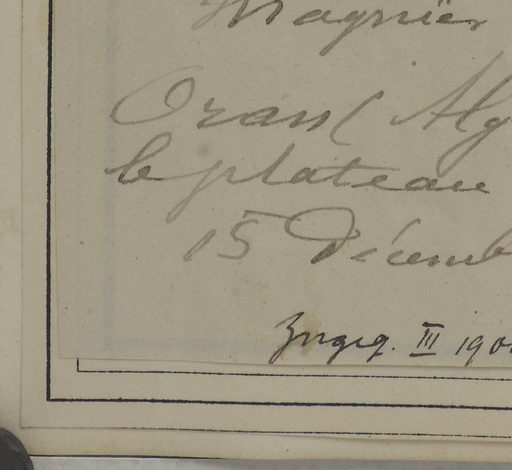 Magnier
Oran (Alg
le plateau
15 Décemb
Zugeg. III 190